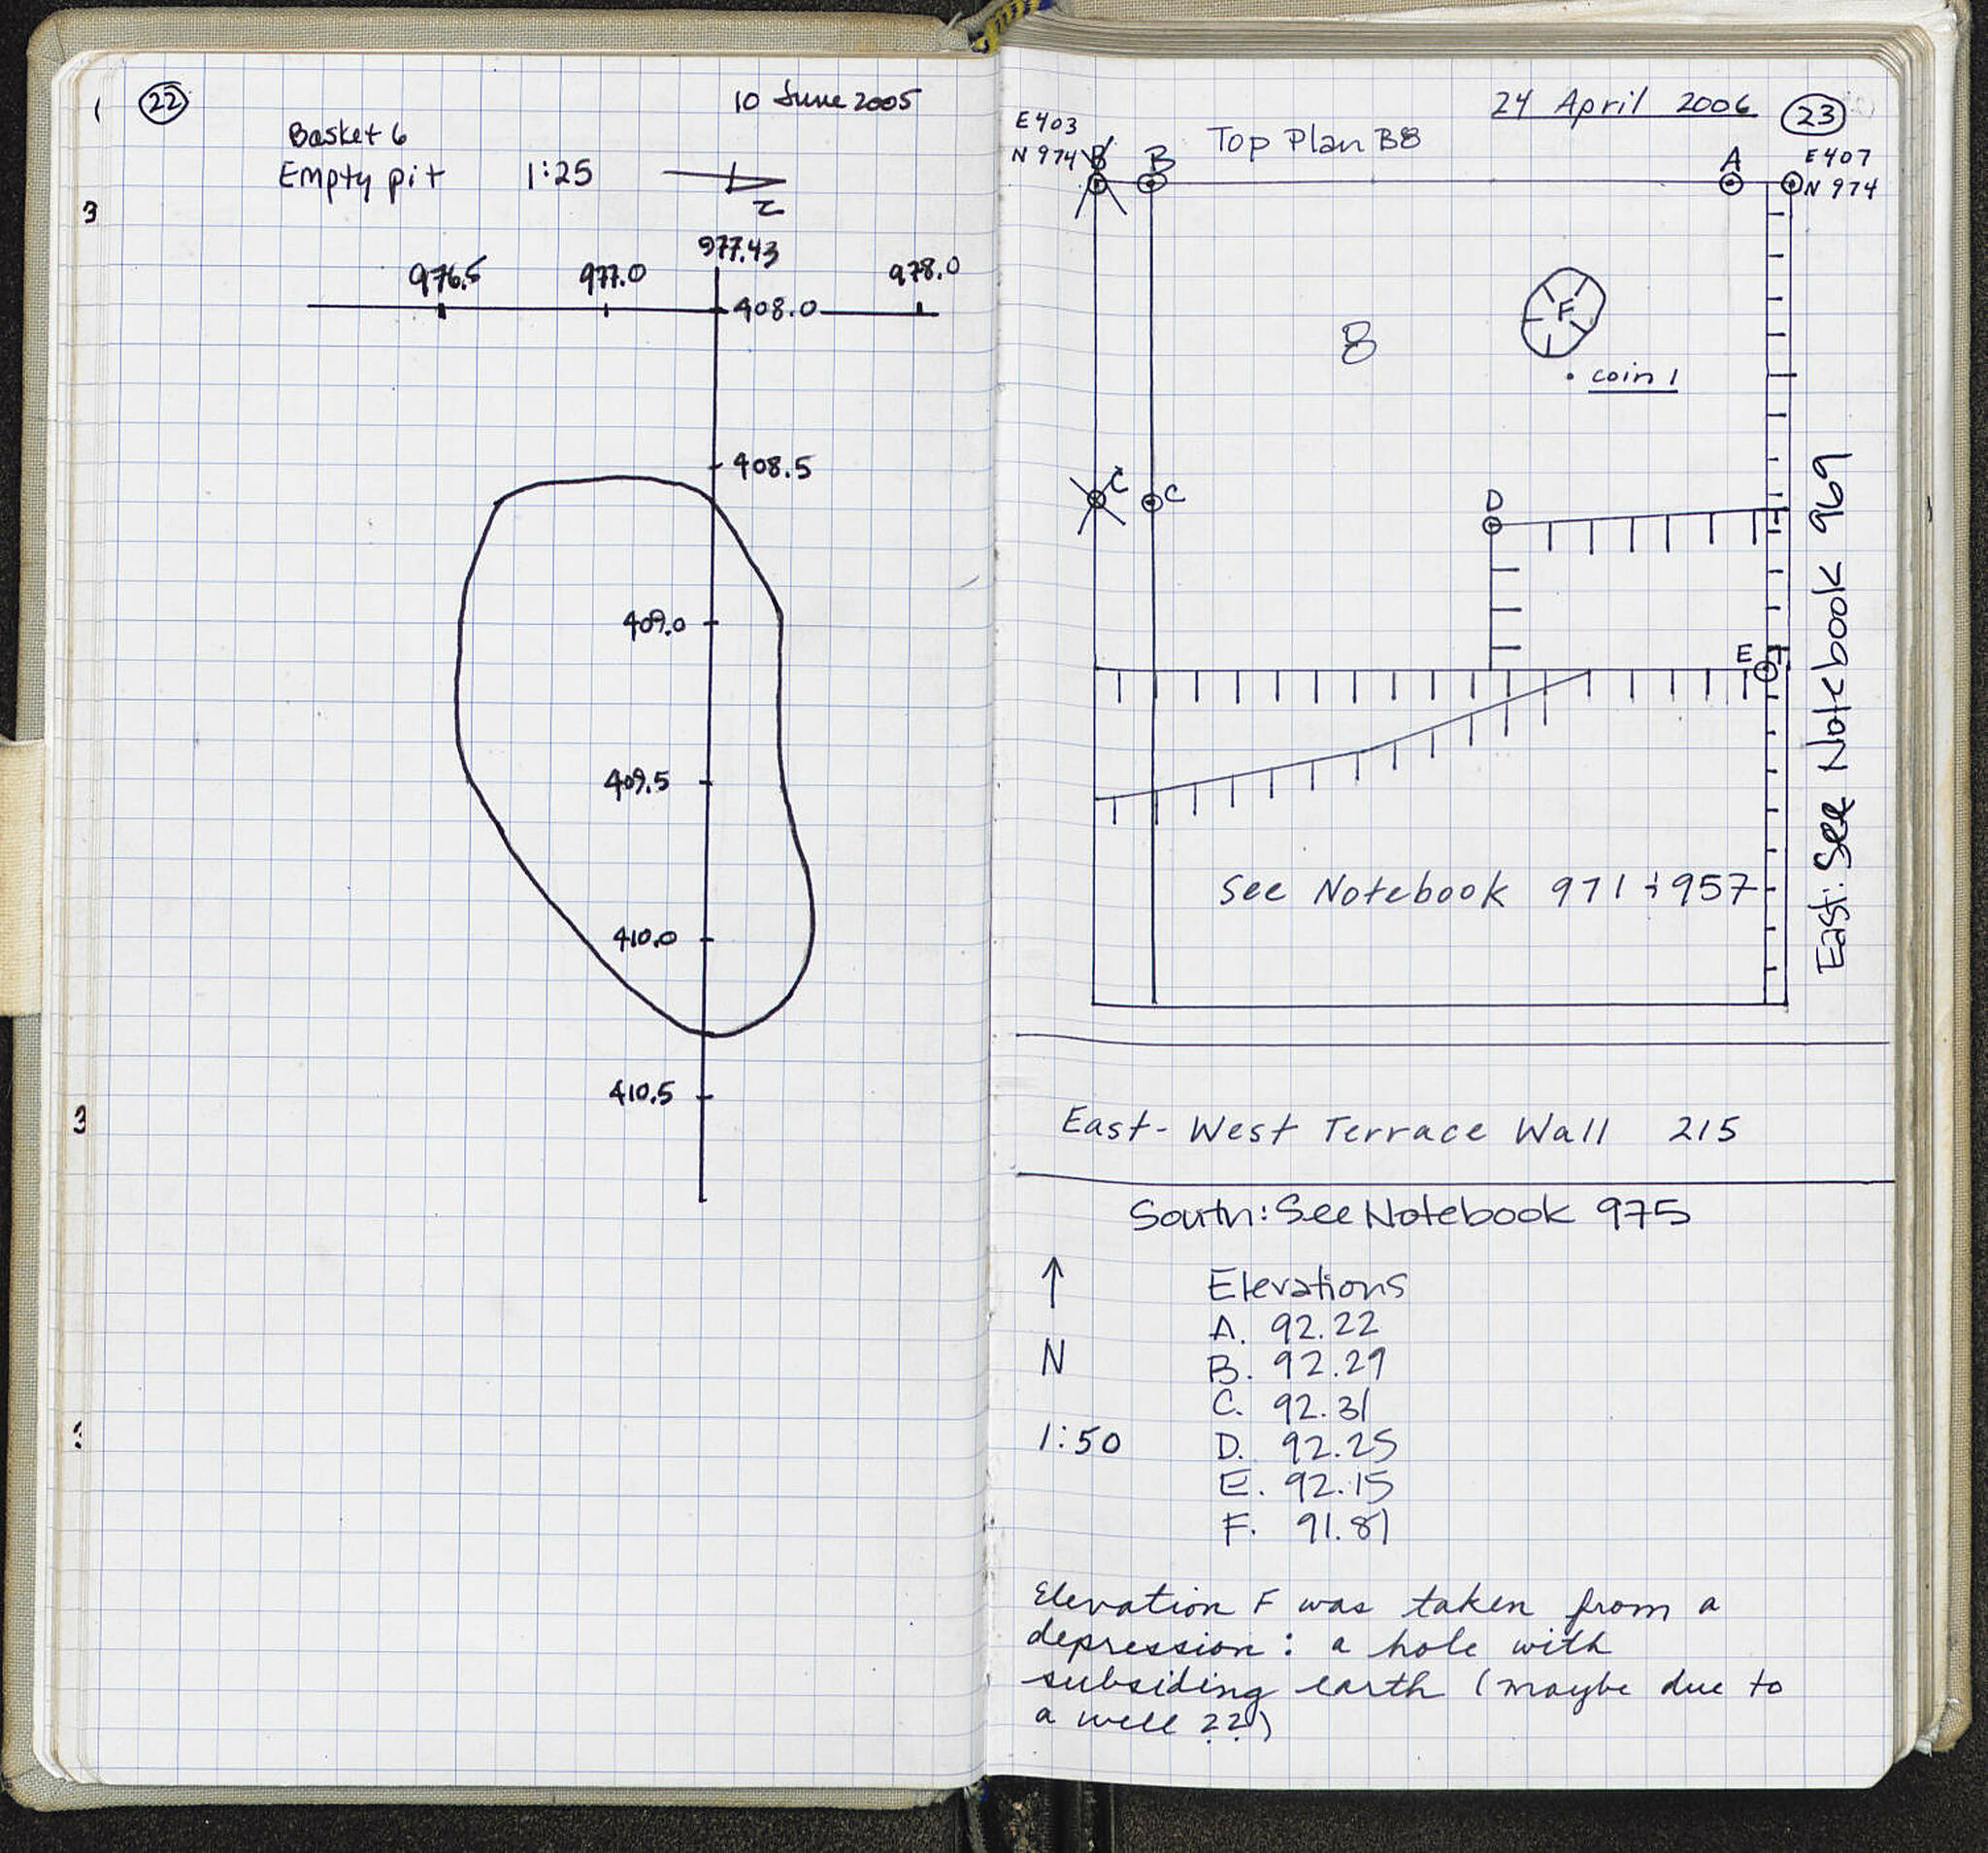 22
10 June 2005
Basket 6
Empty pit 1:25
N
977.43
976.5 977.0 978.0
408.0
408.5
409.0
409.5
410.0
410.5
24 April 2006 23
E403
N 974
Top Plan B8
E407
N 974
B B A
F
8
coin 1
C C
D
E
East: See Notebook 969
See Notebook 971 + 957
East-West Terrace Wall 215
South: See Notebook 975
↑
N
1:50
Elevations
A. 92.22
B. 92.29
C. 92.31
D. 92.25
E. 92.15
F. 91.81
Elevation F was taken from a
depression: a hole with
subsiding earth (maybe due to
a well ??)